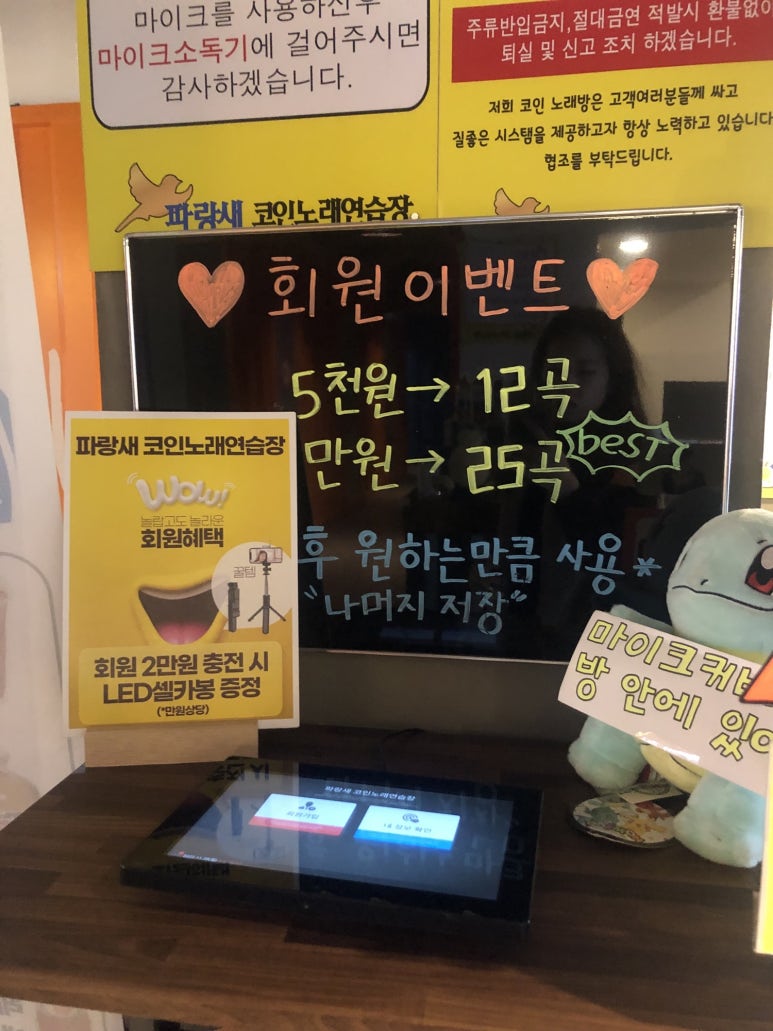 마이크를 사용하신후
마이크소독기에 걸어주시면
감사하겠습니다.
파랑새 코인노래연습장.
주류반입금지,절대금연 적발시 환불없이
퇴실 및 신고 조치 하겠습니다.
저희 코인 노래방은 고객여러분들께 싸고
질좋은 시스템을 제공하고자 항상 노력하고 있습니다
협조를 부탁드립니다.
회원 이벤트
5천원→ 12곡
만원→ 25곡
best
후 원하는만큼 사용*
"나머지 저장"
파랑새 코인노래연습장
WOW!
놀랍고도 놀라운
회원혜택
꿀템
회원 2만원 충전 시
LED셀카봉 증정
(*만원상당)
마이크커버
방 안에 있어
파랑새 코인노래연습장
회원가입
내 정보 확인